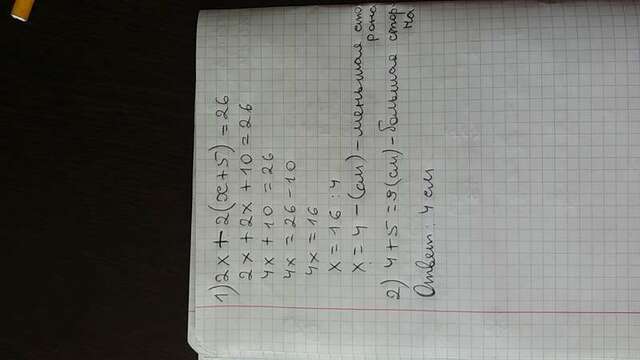 1) 2x + 2(x+5) = 26
2x + 2x + 10 = 26
4x + 10 = 26
4x = 26 - 10
4x = 16
x = 16 : 4
x = 4 - (см) - меньшая сто
рона
2) 4 + 5 = 9 (см) - большая стор-
на
Ответ: 4 см